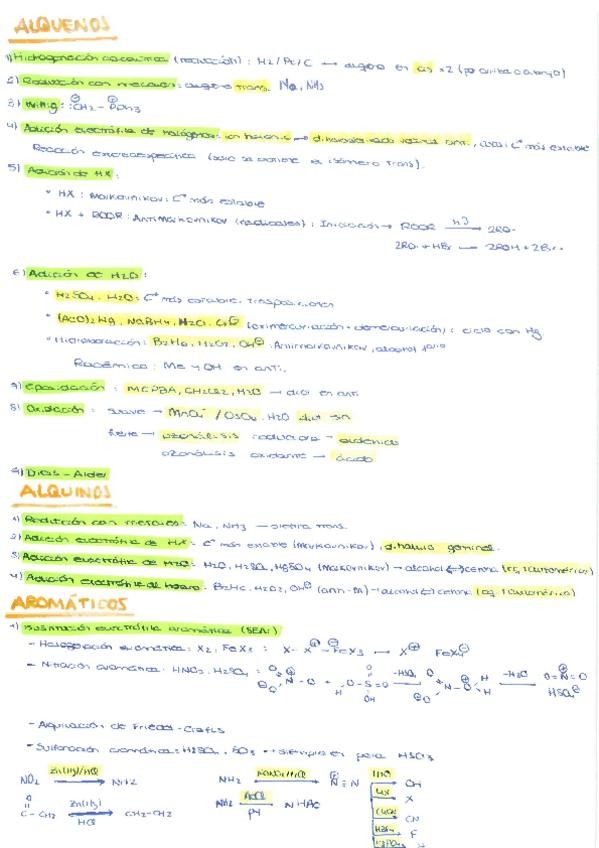 ALQUENOS
1) Hidrogenación catalítica (reducción): H2/Pt/C → alqueno en cis x2 (pq arriba o abajo)
2) Reducción con metales: alqueno trans. Na, NH3
3) Wittig: CH2 - PPh3
4) Adición electrófila de halógenos: ion halonio → dihaloderivado vecinal anti, C+ más estable
Reacción estereoespecífica (solo se obtiene el isómero trans).
5) Adición de HX:
• HX: Markovnikov: C+ más estable
• HX + ROOR: AntiMarkovnikov (radicales): Iniciación → ROOR → 2RO·
2RO· + HBr → 2ROH + 2Br·
6) Adición de H2O:
• H2SO4, H2O: C+ más estable. Transposiciones
• (AcO)2Hg, NaBH4, H2O, OH⊖ (oximercuriación - demercuriación): ciclo con Hg
• Hidroboración: B2H6, H2O2, OH⊖ Antimarkovnikov, alcohol 1ario
Racémico: Me y OH en anti.
7) Epoxidación: MCPBA, CH2Cl2, H3O → diol en anti
8) Oxidación: suave → MnO4⁻ / OsO4, H2O diol sin
fuerte → ozonólisis reductora → aldehído
ozonólisis oxidante → ácido
9) Diels - Alder
ALQUINOS
1) Reducción con metales: Na, NH3 → siempre trans.
2) Adición electrófila de HX: C+ más estable (Markovnikov), dihaluro geminal.
3) Adición electrófila de H2O: H2O, H2SO4, HgSO4 (Markovnikov) → alcohol ↔ cetona (eq. tautomérico)
4) Adición electrófila de B2H6, H2O2, OH⊖ (anti-M) → alcohol ↔ cetona (eq. tautomérico)
AROMÁTICOS
1) Sustitución electrófila aromática (SEAr)
- Halogenación aromática: X2, FeX3: X - X⊕ - ⊖FeX3 → X⊕ FeX4⊖
- Nitración aromática: HNO3, H2SO4:
- Alquilación de Friedel-Crafts
- Sulfonación aromática: H2SO4, SO3
NO2 Zn(Hg)/HCl → NH2
NH2 NaNO2/HCl → N≡N
H2O → OH
C - CH2 Zn(Hg) HCl → CH2-CH2
NH2 AcCl py → NHAc
X
CN
F